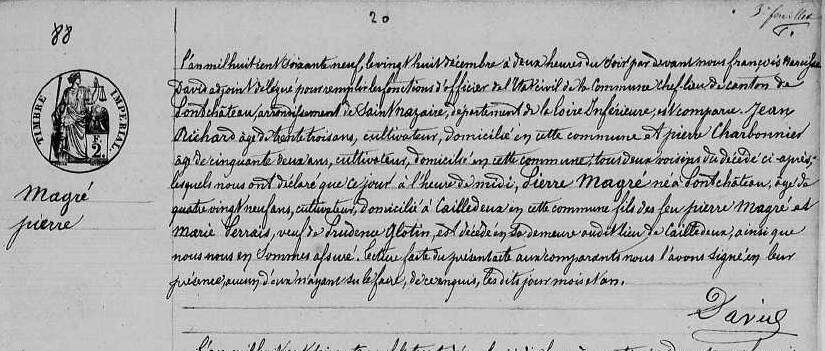 20
3e feuillet
88
TIMBRE IMPÉRIAL
Magré
pierre
L'an mil huit cent soixante neuf, le vingt huit décembre à deux heures du soir par devant nous françois
David adjoint délégué pour remplir les fonctions d'officier de l'Etat civil de la Commune chef lieu de canton de
Pontchâteau, arrondissement de Saint Nazaire, département de la Loire Inférieure, est comparu Jean
Richard âgé de trente trois ans, cultivateur, domicilié en cette commune et pierre Charbonnier
âgé de cinquante deux ans, cultivateur, domicilié en cette commune, tous deux voisins du décédé ci-après,
lesquels nous ont déclaré que ce jour à l'heure de midi, Pierre Magré né à Pontchâteau, âgé de
quatre vingt neuf ans, cultivateur, domicilié à Cailledeux en cette commune fils des feu pierre Magré et
Marie Perrais, veuf de Prudence Glotin, est décédé en sa demeure audit lieu de Cailledeux, ainsi que
nous nous en sommes assuré. Lecture faite du présent acte aux comparants nous l'avons signé en leur
présence, aucun d'eux n'ayant su le faire, de ce requis, les dits jour mois et an.
David